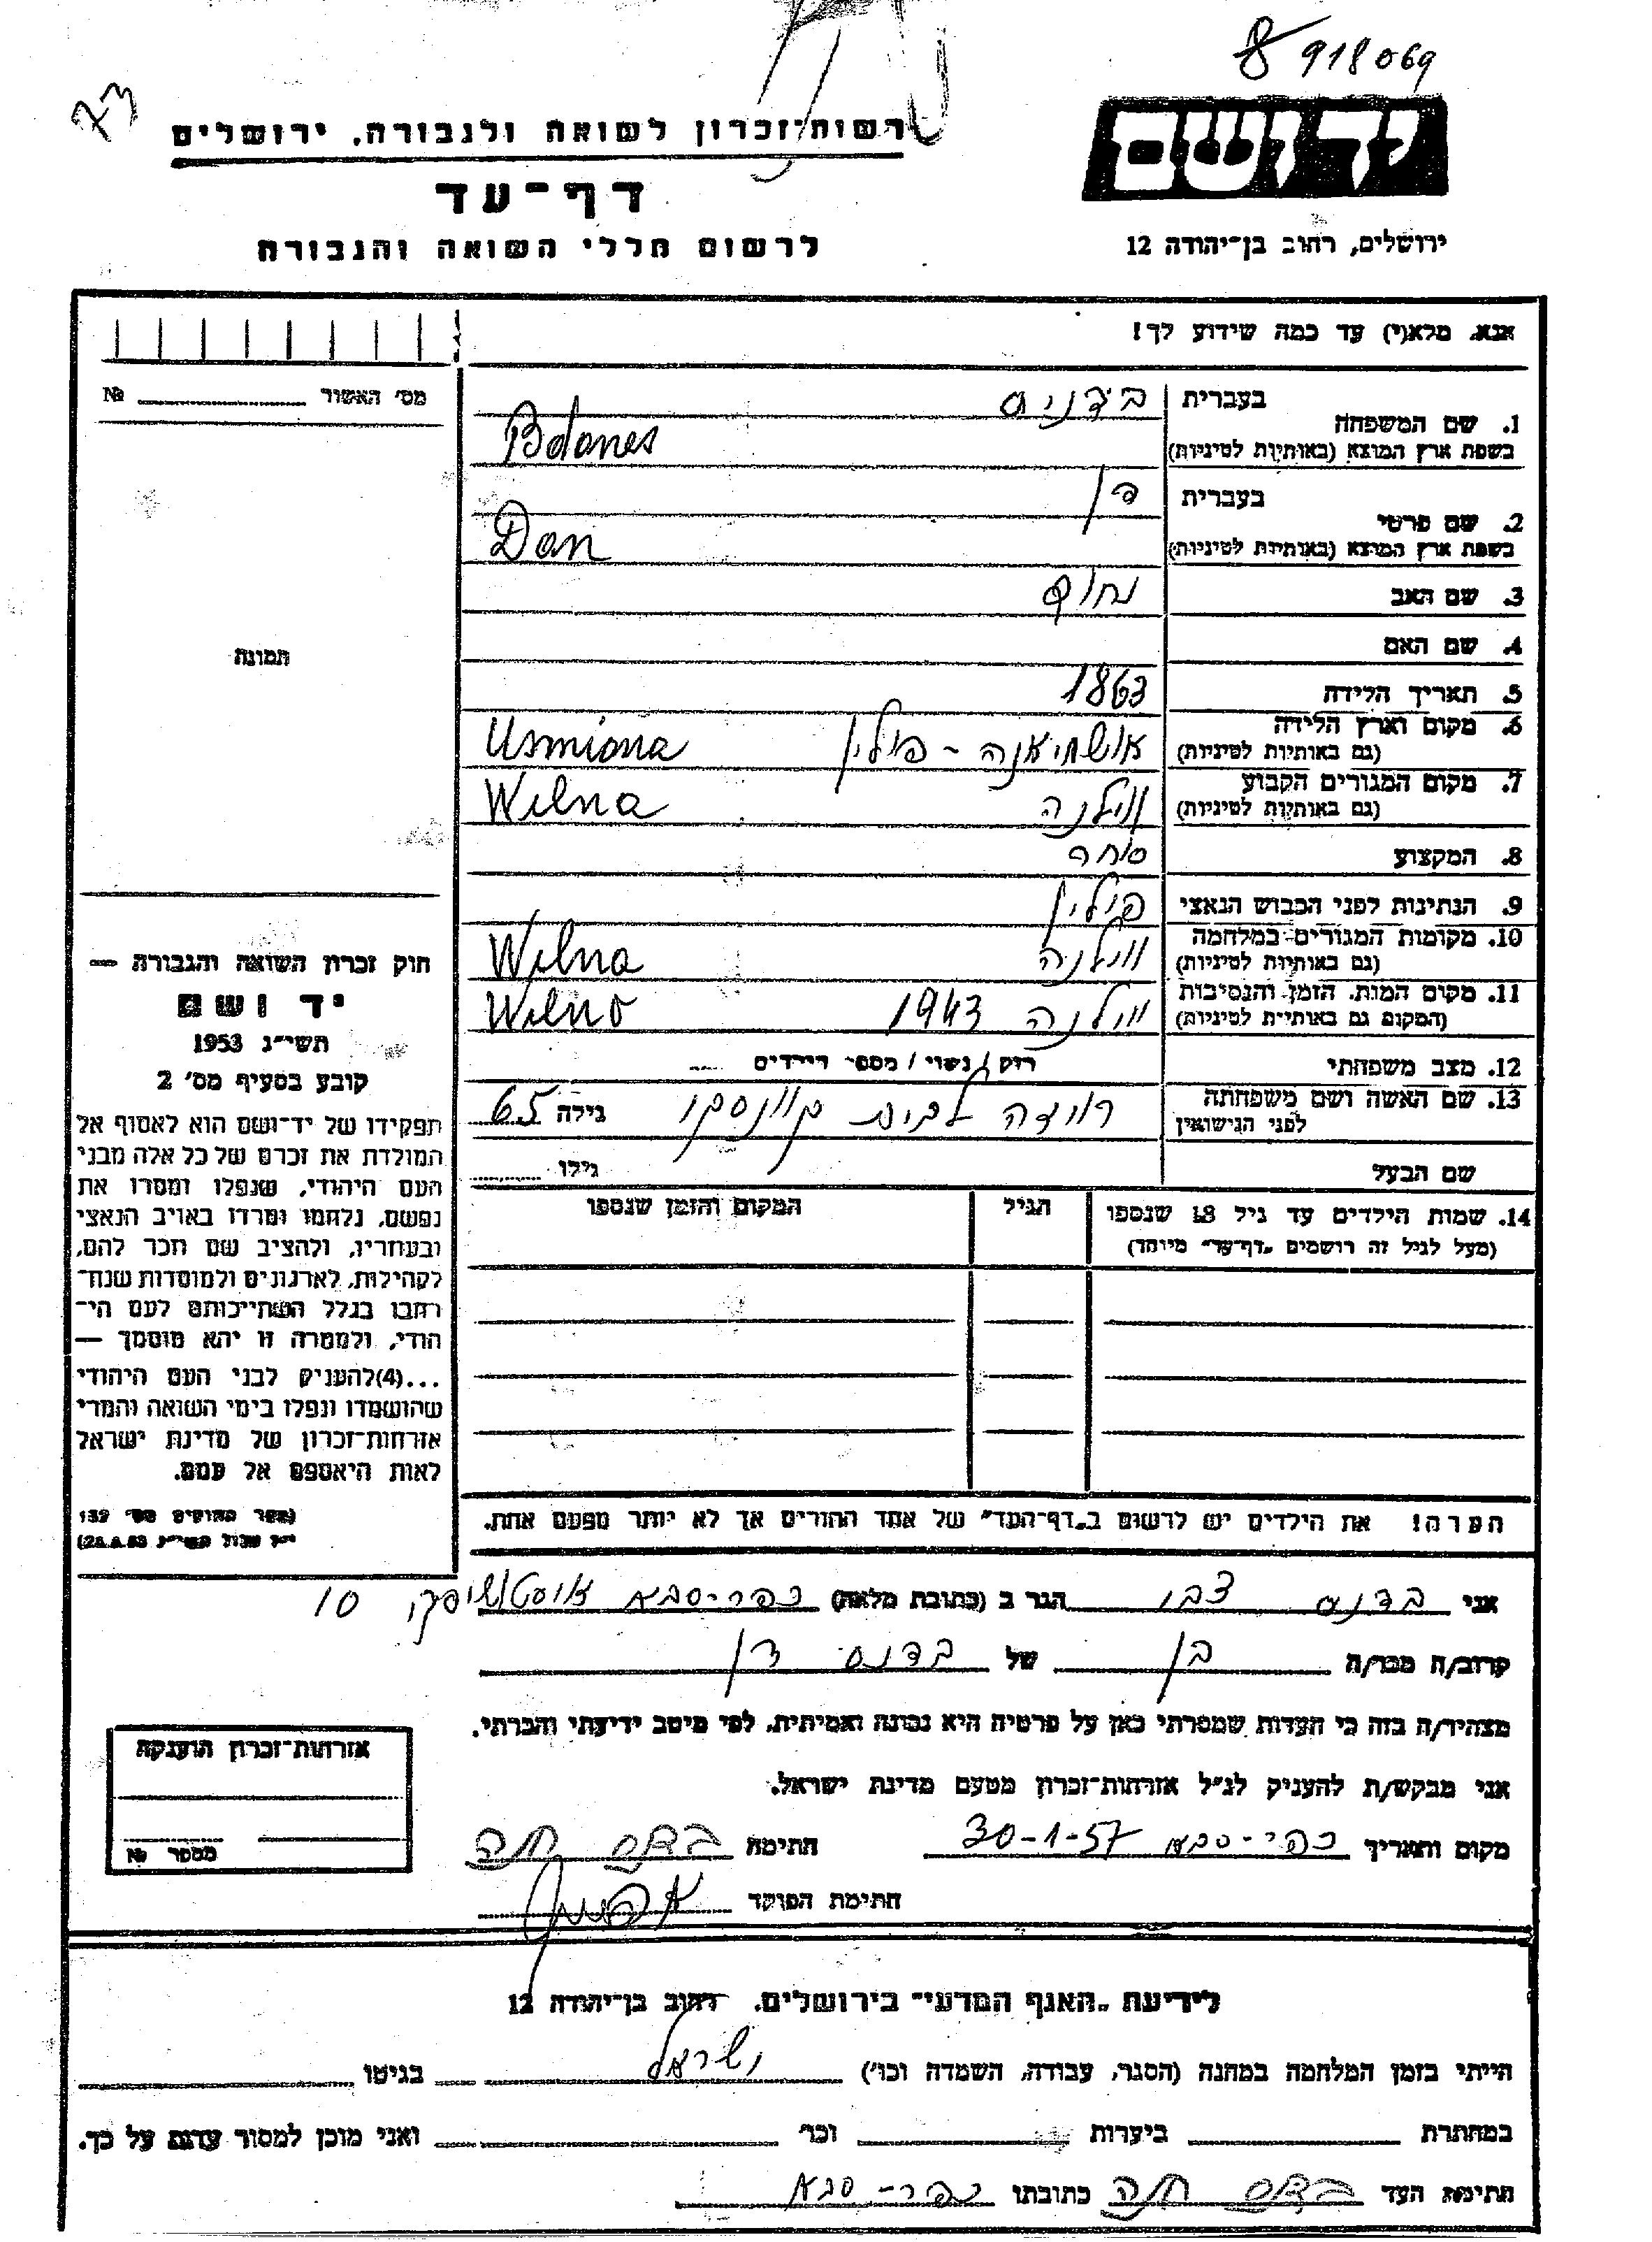 8 918069
73
רשות־זכרון לשואה ולגבורה, ירושלים
יד ושם
דף־עד
לרשום חללי השואה והגבורה
ירושלים, רחוב בן־יהודה 12
אנא, מלא(י) עד כמה שידוע לך!
מס' האשור № 
1. שם המשפחה
בעברית בדניס
בשפת ארץ המוצא (באותיות לטיניות) Bdanes
2. שם פרטי
בעברית דן
בשפת ארץ המוצא (באותיות לטיניות) Dan
3. שם האב
4. שם האם
תמונה
5. תאריך הלידה 1863
6. מקום וארץ הלידה
(גם באותיות לטיניות) אושמיאנה - פולין Usmiana
7. מקום המגורים הקבוע
(גם באותיות לטיניות) ווילנה Wilna
8. המקצוע סוחר
9. הנתינות לפני הכבוש הנאצי פולין
10. מקומות המגורים במלחמה
(גם באותיות לטיניות) ווילנה Wilna
11. מקום המות, הזמן והנסיבות
(המקום גם באותיות לטיניות) ווילנה 1943 Wilno
12. מצב משפחתי רווק / נשוי / מספר הילדים
13. שם האשה ושם משפחתה
לפני הנישואין לבית גילה 65
שם הבעל גילו
14. שמות הילדים עד גיל 18 שנספו
(מעל לגיל זה רושמים „דף־עד" מיוחד)
הגיל
המקום והזמן שנספו
חוק זכרון השואה והגבורה —
יד ושם
תשי"ג 1953
קובע בסעיף מס' 2
תפקידו של יד־ושם הוא לאסוף אל
המולדת את זכרם של כל אלה מבני
העם היהודי, שנפלו ומסרו את
נפשם, נלחמו ומרדו באויב הנאצי
ובעוזריו, ולהציב שם וזכר להם,
לקהילות, לארגונים ולמוסדות שנח־
רבו בגלל השתייכותם לעם הי־
הודי, ולמטרה זו יהא מוסמך —
...(4)להעניק לבני העם היהודי
שהושמדו ונפלו בימי השואה והמרי
אזרחות־זכרון של מדינת ישראל
לאות היאספם אל עמם.
(ספר החוקים מס' 132
הערה! את הילדים יש לרשום ב„דף־העד" של אחד ההורים אך לא יותר מפעם אחת.
אני בדנס צבי הגר ב (כתובת מלאה) כפר-סבא 10
קרוב/ה מכר/ה בן של בדנס דן
מצהיר/ה בזה כי העדות שמסרתי כאן על פרטיה היא נכונה ואמיתית, לפי מיטב ידיעתי והכרתי.
אני מבקש/ת להעניק לנ"ל אזרחות־זכרון מטעם מדינת ישראל.
אזרחות־זכרון הוענקה
מספר №
מקום ותאריך כפר-סבא 30-1-57 חתימה בדנס חיה
חתימת הפוקד
לידיעת „האגף המדעי" בירושלים, רחוב בן־יהודה 12
הייתי בזמן המלחמה במחנה (הסגר, עבודה, השמדה וכו') ישראל בגיטו
במחתרת ביערות וכו' ואני מוכן למסור עדות על כך.
חתימת העד בדנס חיה כתובתו כפר-סבא